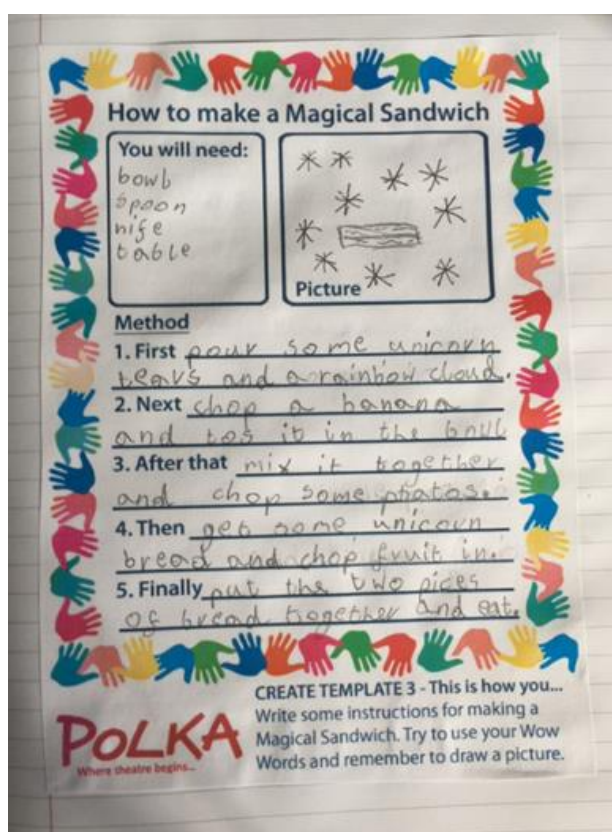 How to make a Magical Sandwich
You will need:
bowl
spoon
nife
table
Picture
Method
1. First pour some unicorn
tears and a rainbow cloud.
2. Next chop a banana
and tos it in the
3. After that mix it together
and chop some photos.
4. Then get some unicorn
bread and chop fruit in.
5. Finally put the two pices
of bread together and eat.
CREATE TEMPLATE 3 - This is how you...
Write some instructions for making a
Magical Sandwich. Try to use your Wow
Words and remember to draw a picture.
POLKA
Where theatre begins...